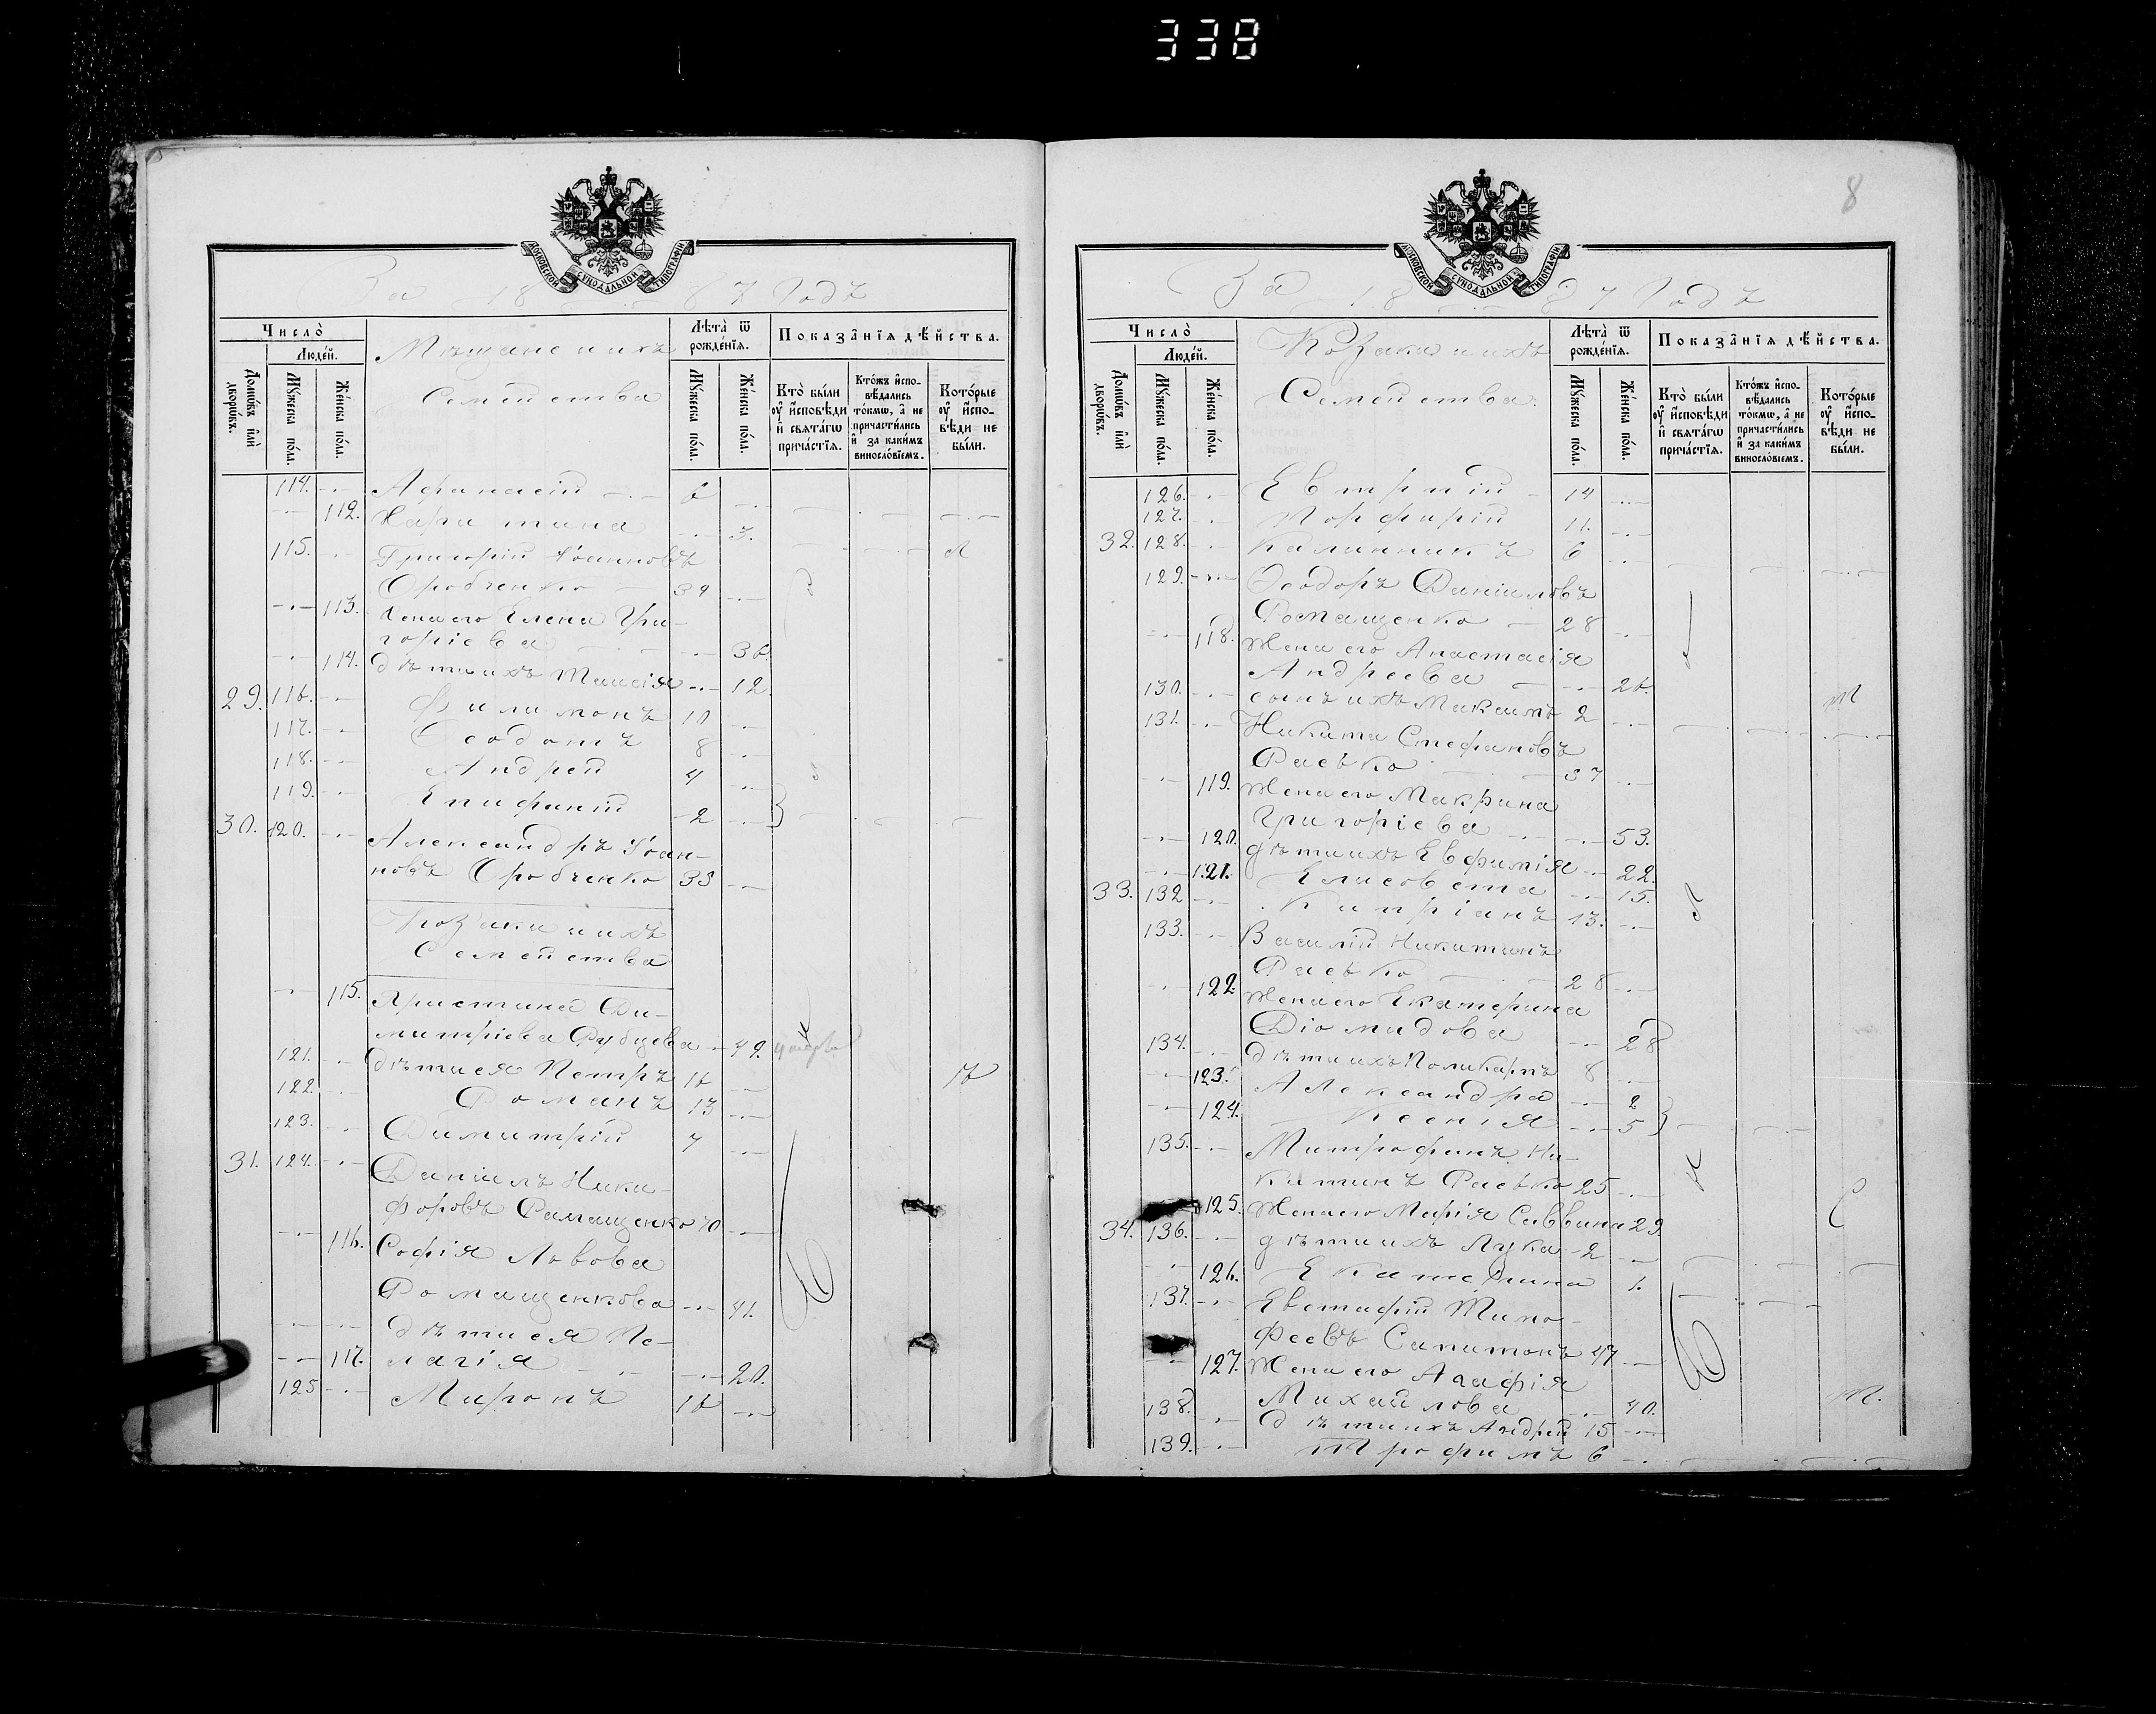 338
8
МОСКОВСКОЙ СѴНОДАЛЬНОЙ ТИПОГРАФІИ
За 18 87 Годъ
Число̀
Людей.
Домѡвъ и҆лѝ дворѡвъ.
Мꙋжеска пола.
Женска пола.
Мѣщане и ихъ
Семейства
Лѣта̀ ѿ рожденїѧ.
Мꙋжеска пола.
Женска пола.
Показанїѧ дѣйства.
Кто̀ были оу҆ и҆сповѣди и҆ свѧтагѡ причастїѧ.
Ктожъ и҆сповѣдались токмѡ, а҆ не причастились и҆ за какимъ винословїемъ.
Которые оу҆ и҆сповѣди не были.
114. Афанасій 6
112. Харитина 3.
115. Григорій Іоанновъ
Оробченко 39
113. Жена его Елена Гри-
горіева 36.
114. дѣти ихъ Таисія 12.
29. 116. Филимонъ 10
117. Ѳеодотъ 8
118. Андрей 4
119. Епифаній 2
30. 120. Александръ Іоан-
новъ Оробченко 33
Козаки и ихъ
Семейства
115. Христина Ди-
митріева Рубцева 49.
121. дѣти ея Петръ 16
122. Романъ 13
123. Димитрій 7
31. 124. Даніилъ Ники-
форовъ Ромащенко 70
116. Софія Львова
Ромащенкова 41.
дѣти ея Пе-
117. лагія 20.
125 Миронъ 16
МОСКОВСКОЙ СѴНОДАЛЬНОЙ ТИПОГРАФІИ
За 18 87 Годъ
Число̀
Людей.
Домѡвъ и҆лѝ дворѡвъ.
Мꙋжеска пола.
Женска пола.
Козаки и ихъ
Семейства.
Лѣта̀ ѿ рожденїѧ.
Мꙋжеска пола.
Женска пола.
Показанїѧ дѣйства.
Кто̀ были оу҆ и҆сповѣди и҆ свѧтагѡ причастїѧ.
Ктожъ и҆сповѣдались токмѡ, а҆ не причастились и҆ за какимъ винословїемъ.
Которые оу҆ и҆сповѣди не были.
126. Евтропій 14
127. Порфирій 11.
32. 128. Калинникъ 6
129. Ѳеодоръ Даніиловъ
Ромащенко 28
118. Жена его Анастасія
Андреева 26.
130. сынъ ихъ Максимъ 2
131. Никита Стефановъ
Раевко 57
119. Жена его Макрина
Григоріева 53.
120. дѣти ихъ Евфимія 22.
121. Елисовета 15.
33. 132 Кипріанъ 13.
133. Василій Никитинъ
Раевко 28
122. Жена его Екатерина
Діомидова 28
134. дѣти ихъ Поликарпъ 8
123. Александра 2
124. Ксенія 5
135. Митрофанъ Ни-
китинъ Раевко 25
125. Жена его Марія Саввина 23.
34. 136. дѣти ихъ Лука 2
126. Екатерина 1.
137. Евстафій Тимо-
феевъ Сапитонъ 47
127. Жена его Агафія
Михайлова 40.
138. дѣти ихъ Андрей 15
139. Трофимъ 6